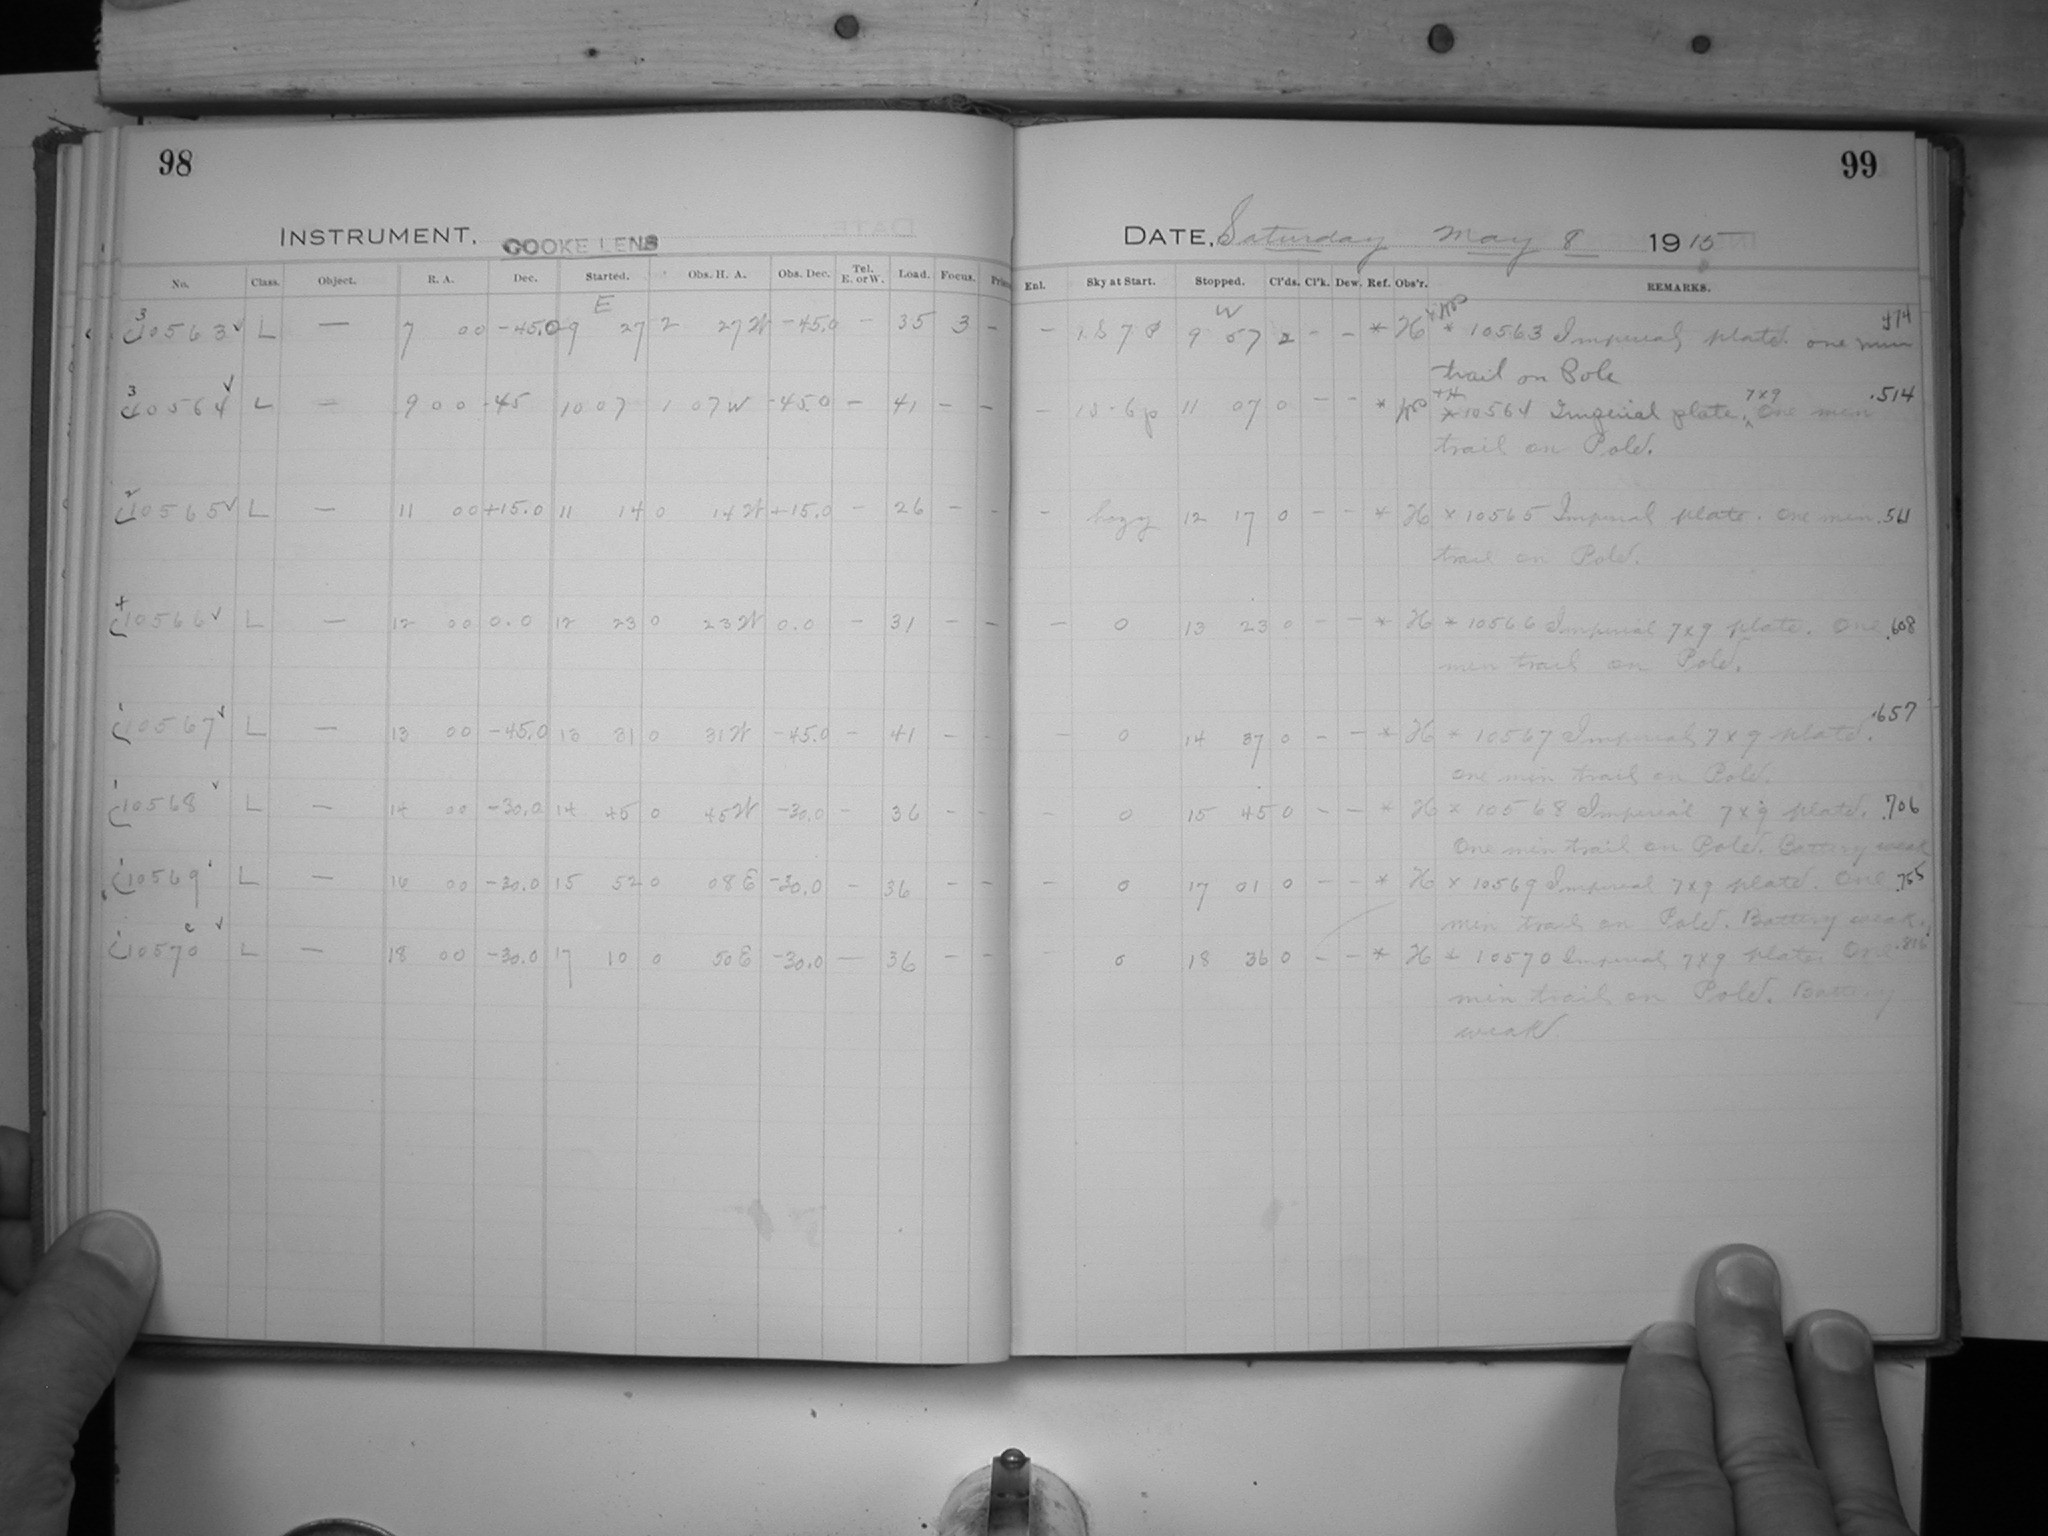 98
INSTRUMENT. COOKE LENS
No. Class. Object. R. A. Dec. Started. Obs. H. A. Obs. Dec. Tel. E. or W. Load. Focus.
E
3 10563 ✓ L — 7 00 -45.0 9 27 2 27 W -45.0 — 35 3 —
3 10564 ✓ L — 9 00 -45 10 07 1 07 W -45.0 — 41 — —
10565 ✓ L — 11 00 +15.0 11 14 0 14 W +15.0 — 26 — —
10566 ✓ L — 12 00 0.0 12 23 0 23 W 0.0 — 31 — —
10567 ✓ L — 13 00 -45.0 13 31 0 31 W -45.0 — 41 — —
10568 ✓ L — 14 00 -30.0 14 45 0 45 W -30.0 — 36 — —
10569 L — 16 00 -30.0 15 52 0 08 E -30.0 — 36 — —
10570 ✓ L — 18 00 -30.0 17 10 0 50 E -30.0 — 36 — —
99
DATE, Saturday May 8 1915
Enl. Sky at Start. Stopped. Cl'ds. Cl'k. Dew. Ref. Obs'r. REMARKS.
W
— 9 57 2 — — * H * 10563 Imperial plate. one min .474
trail on Pole
— 11 07 0 — — * * 10564 Imperial plate. 7x9 One min .514
trail on Pole.
— hazy 12 17 0 — — * H * 10565 Imperial plate. One min .561
trail on Pole.
— 0 13 23 0 — — * H * 10566 Imperial 7x9 plate. One .608
min trail on Pole.
— 0 14 37 0 — — * H * 10567 Imperial 7x9 plate. .657
one min trail on Pole.
— 0 15 45 0 — — * H * 10568 Imperial 7x9 plate. .706
One min trail on Pole. Battery weak
— 0 17 01 0 — — * H * 10569 Imperial 7x9 plate. One .755
min trail on Pole. Battery weak.
— 0 18 36 0 — — * H * 10570 Imperial 7x9 plate. One
min trail on Pole. Battery
weak